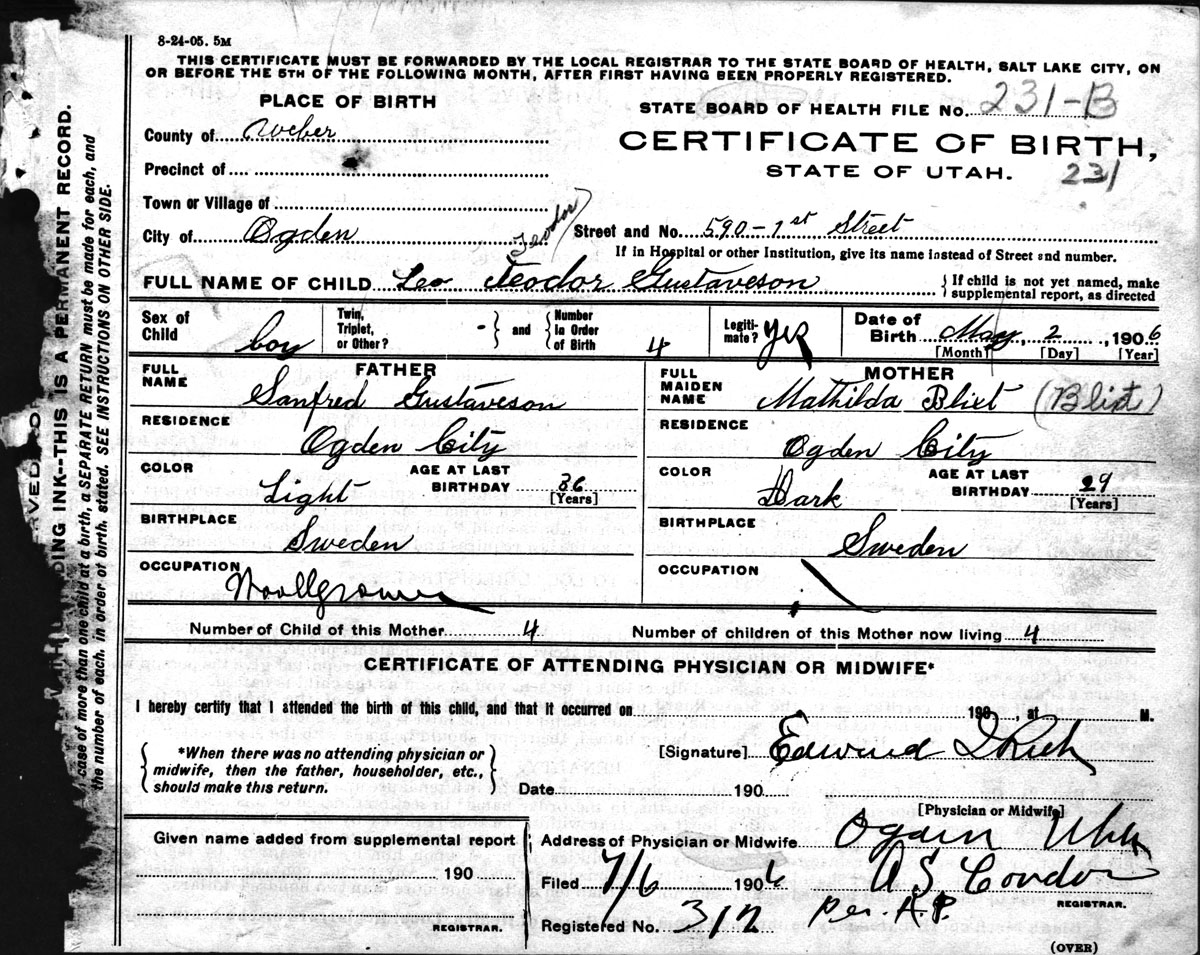 8-24-05. 5M
THIS CERTIFICATE MUST BE FORWARDED BY THE LOCAL REGISTRAR TO THE STATE BOARD OF HEALTH, SALT LAKE CITY, ON
OR BEFORE THE 5TH OF THE FOLLOWING MONTH, AFTER FIRST HAVING BEEN PROPERLY REGISTERED.
PLACE OF BIRTH
STATE BOARD OF HEALTH FILE No. 231-B
County of Weber
CERTIFICATE OF BIRTH,
Precinct of
STATE OF UTAH. 231
Town or Village of
City of Ogden
Teodor
Street and No. 590-1st Street
If in Hospital or other Institution, give its name instead of Street and number.
FULL NAME OF CHILD Leo Teodor Gustaveson
{ If child is not yet named, make
supplemental report, as directed
Sex of Child boy
Twin, Triplet, or Other? - } and { Number in Order of Birth 4
Legiti- mate? yes
Date of Birth May, 2, 1906
[Month] [Day] [Year]
FATHER
FULL NAME Sanfred Gustaveson
RESIDENCE
Ogden City
COLOR Light
AGE AT LAST BIRTHDAY 36
[Years]
BIRTHPLACE
Sweden
OCCUPATION
Woollgrower
MOTHER
FULL MAIDEN NAME Mathilda Blixt (Blixt)
RESIDENCE
Ogden City
COLOR Dark
AGE AT LAST BIRTHDAY 29
[Years]
BIRTHPLACE
Sweden
OCCUPATION
Number of Child of this Mother 4
Number of children of this Mother now living 4
CERTIFICATE OF ATTENDING PHYSICIAN OR MIDWIFE*
I hereby certify that I attended the birth of this child, and that it occurred on 190 , at M.
{ *When there was no attending physician or
midwife, then the father, householder, etc.,
should make this return. }
[Signature] Edward I Rich
Date 190
[Physician or Midwife]
Given name added from supplemental report
190
REGISTRAR.
Address of Physician or Midwife Ogden Utah
Filed 7/6 1906 A S Condon
REGISTRAR.
Registered No. 312 per. A.P.
(OVER)
DING INK--THIS IS A PERMANENT RECORD.
case of more than one child at a birth, a SEPARATE RETURN must be made for each, and
the number of each, in order of birth, stated. SEE INSTRUCTIONS ON OTHER SIDE.